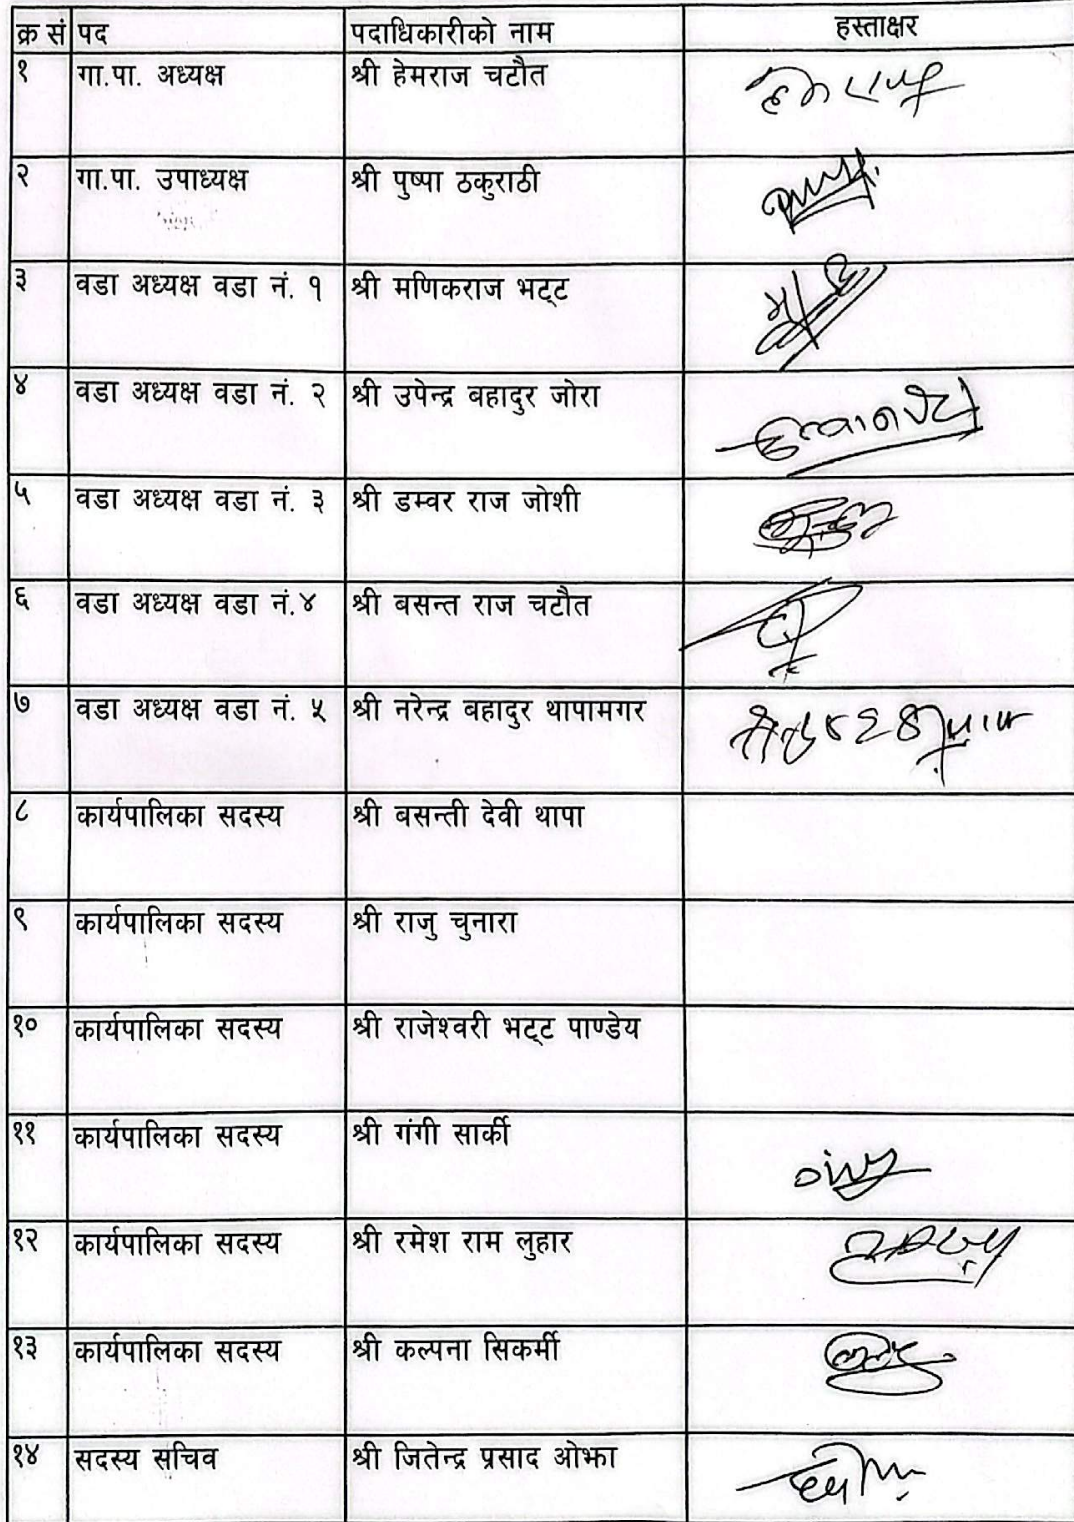 क्र सं पद पदाधिकारीको नाम हस्ताक्षर
१ गा.पा. अध्यक्ष श्री हेमराज चटौत हेमराज
२ गा.पा. उपाध्यक्ष श्री पुष्पा ठकुराठी
३ वडा अध्यक्ष वडा नं. १ श्री मणिकराज भट्ट
४ वडा अध्यक्ष वडा नं. २ श्री उपेन्द्र बहादुर जोरा
५ वडा अध्यक्ष वडा नं. ३ श्री डम्वर राज जोशी
६ वडा अध्यक्ष वडा नं.४ श्री बसन्त राज चटौत
७ वडा अध्यक्ष वडा नं. ५ श्री नरेन्द्र बहादुर थापामगर
८ कार्यपालिका सदस्य श्री बसन्ती देवी थापा
९ कार्यपालिका सदस्य श्री राजु चुनारा
१० कार्यपालिका सदस्य श्री राजेश्वरी भट्ट पाण्डेय
११ कार्यपालिका सदस्य श्री गंगी सार्की
१२ कार्यपालिका सदस्य श्री रमेश राम लुहार
१३ कार्यपालिका सदस्य श्री कल्पना सिकर्मी
१४ सदस्य सचिव श्री जितेन्द्र प्रसाद ओझा